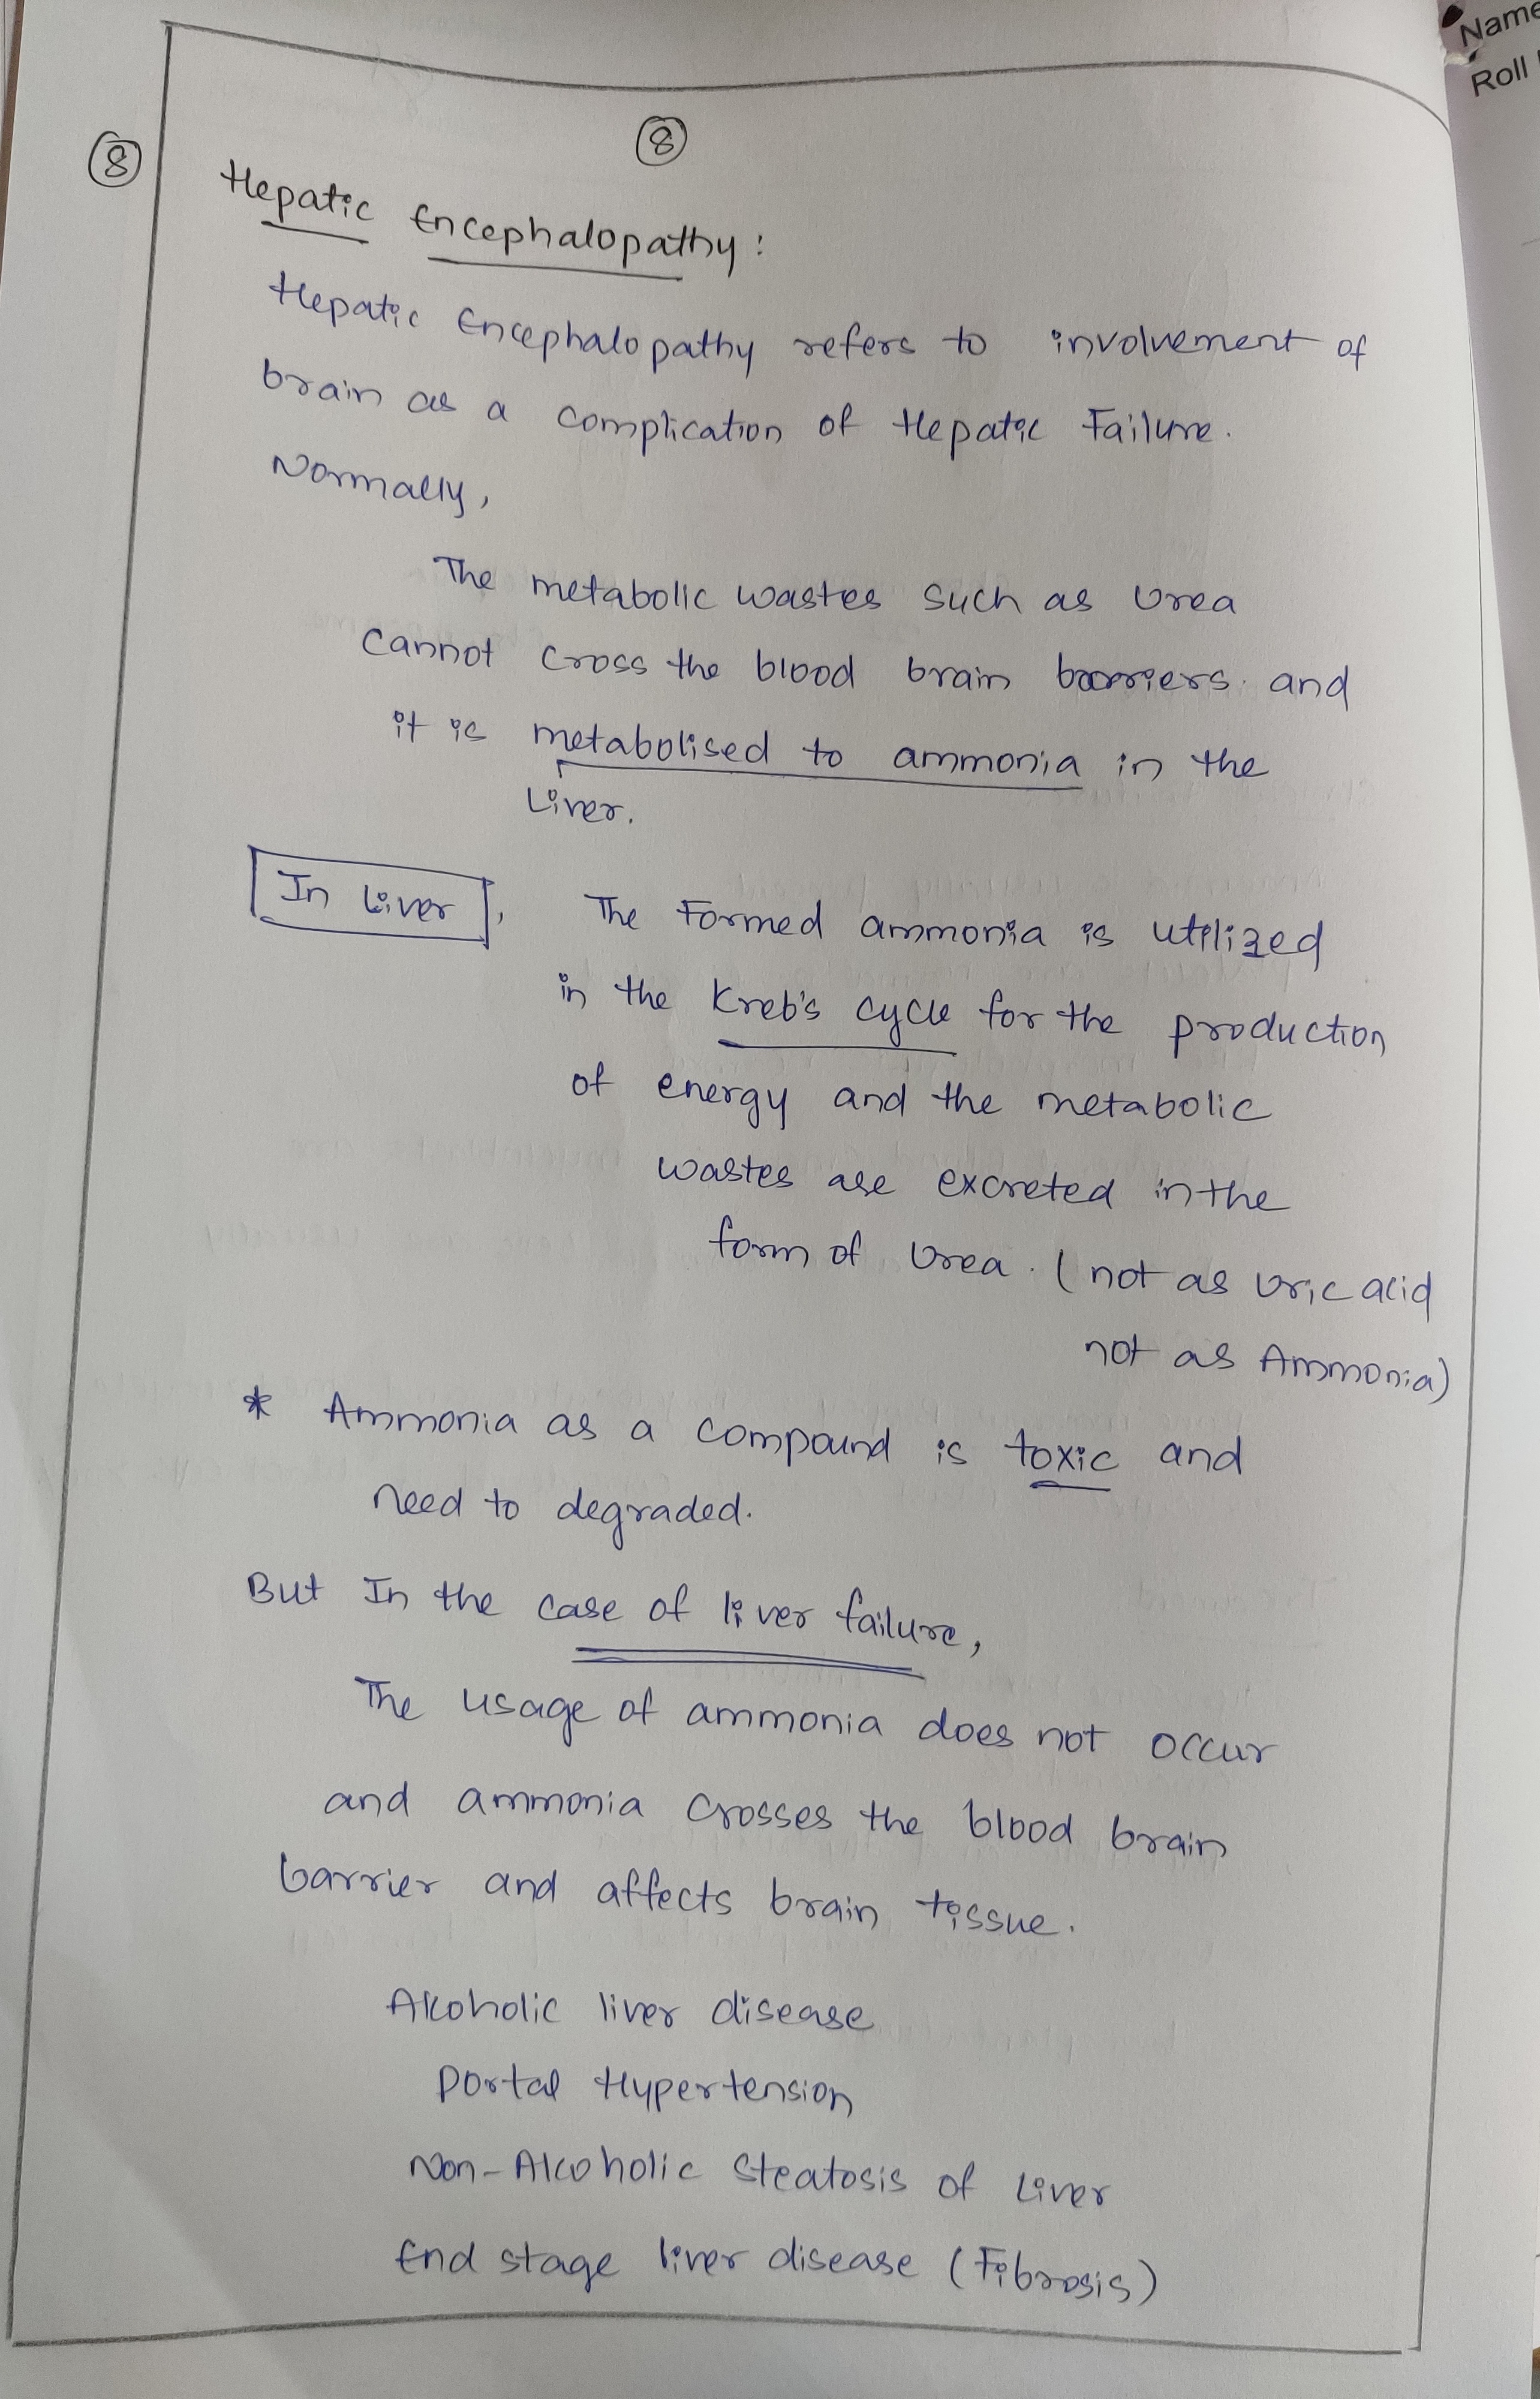 Name
Roll
8
8
Hepatic Encephalopathy:
Hepatic Encephalopathy refers to involvement of
brain as a complication of Hepatic Failure.
Normally,
The metabolic wastes such as Urea
Cannot cross the blood brain barriers. and
it is metabolised to ammonia in the
Liver.
In Liver, The Formed ammonia is utilized
in the Kreb's cycle for the production
of energy and the metabolic
wastes are excreted in the
form of Urea. (not as Uric acid
not as Ammonia)
* Ammonia as a compound is toxic and
need to degraded.
But In the case of liver failure,
The usage of ammonia does not occur
and ammonia crosses the blood brain
barrier and affects brain tissue.
Alcoholic liver disease
Portal Hypertension
Non-Alcoholic Steatosis of Liver
End stage liver disease (Fibrosis)